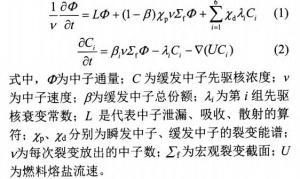 1/v ∂Φ/∂t = LΦ + (1−β)χpνΣfΦ + ∑(i=1→6) χdλiCi (1)
∂Ci/∂t = βiνΣfΦ − λiCi − ∇(UCi) (2)
式中，Φ为中子通量；C为缓发中子先驱核浓度；v
为中子速度；β为缓发中子总份额；λi为第i组先驱
核衰变常数；L是代表中子泄漏、吸收、散射的算
符；χp、χd分别为瞬发中子、缓发中子的裂变能谱；
ν为每次裂变放出的中子数；Σf为宏观裂变截面；U
为燃料熔盐流速。